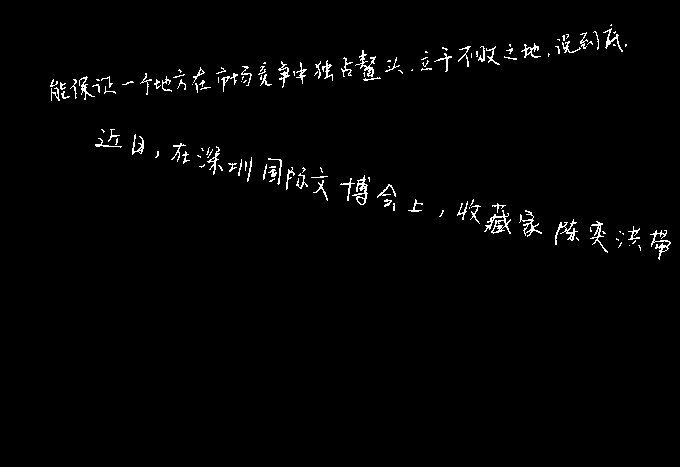 能保证一个地方在市场竞争中独占鳌头、立于不败之地,说到底,
近日,在深圳国际文博会上,收藏家陈奕洪带